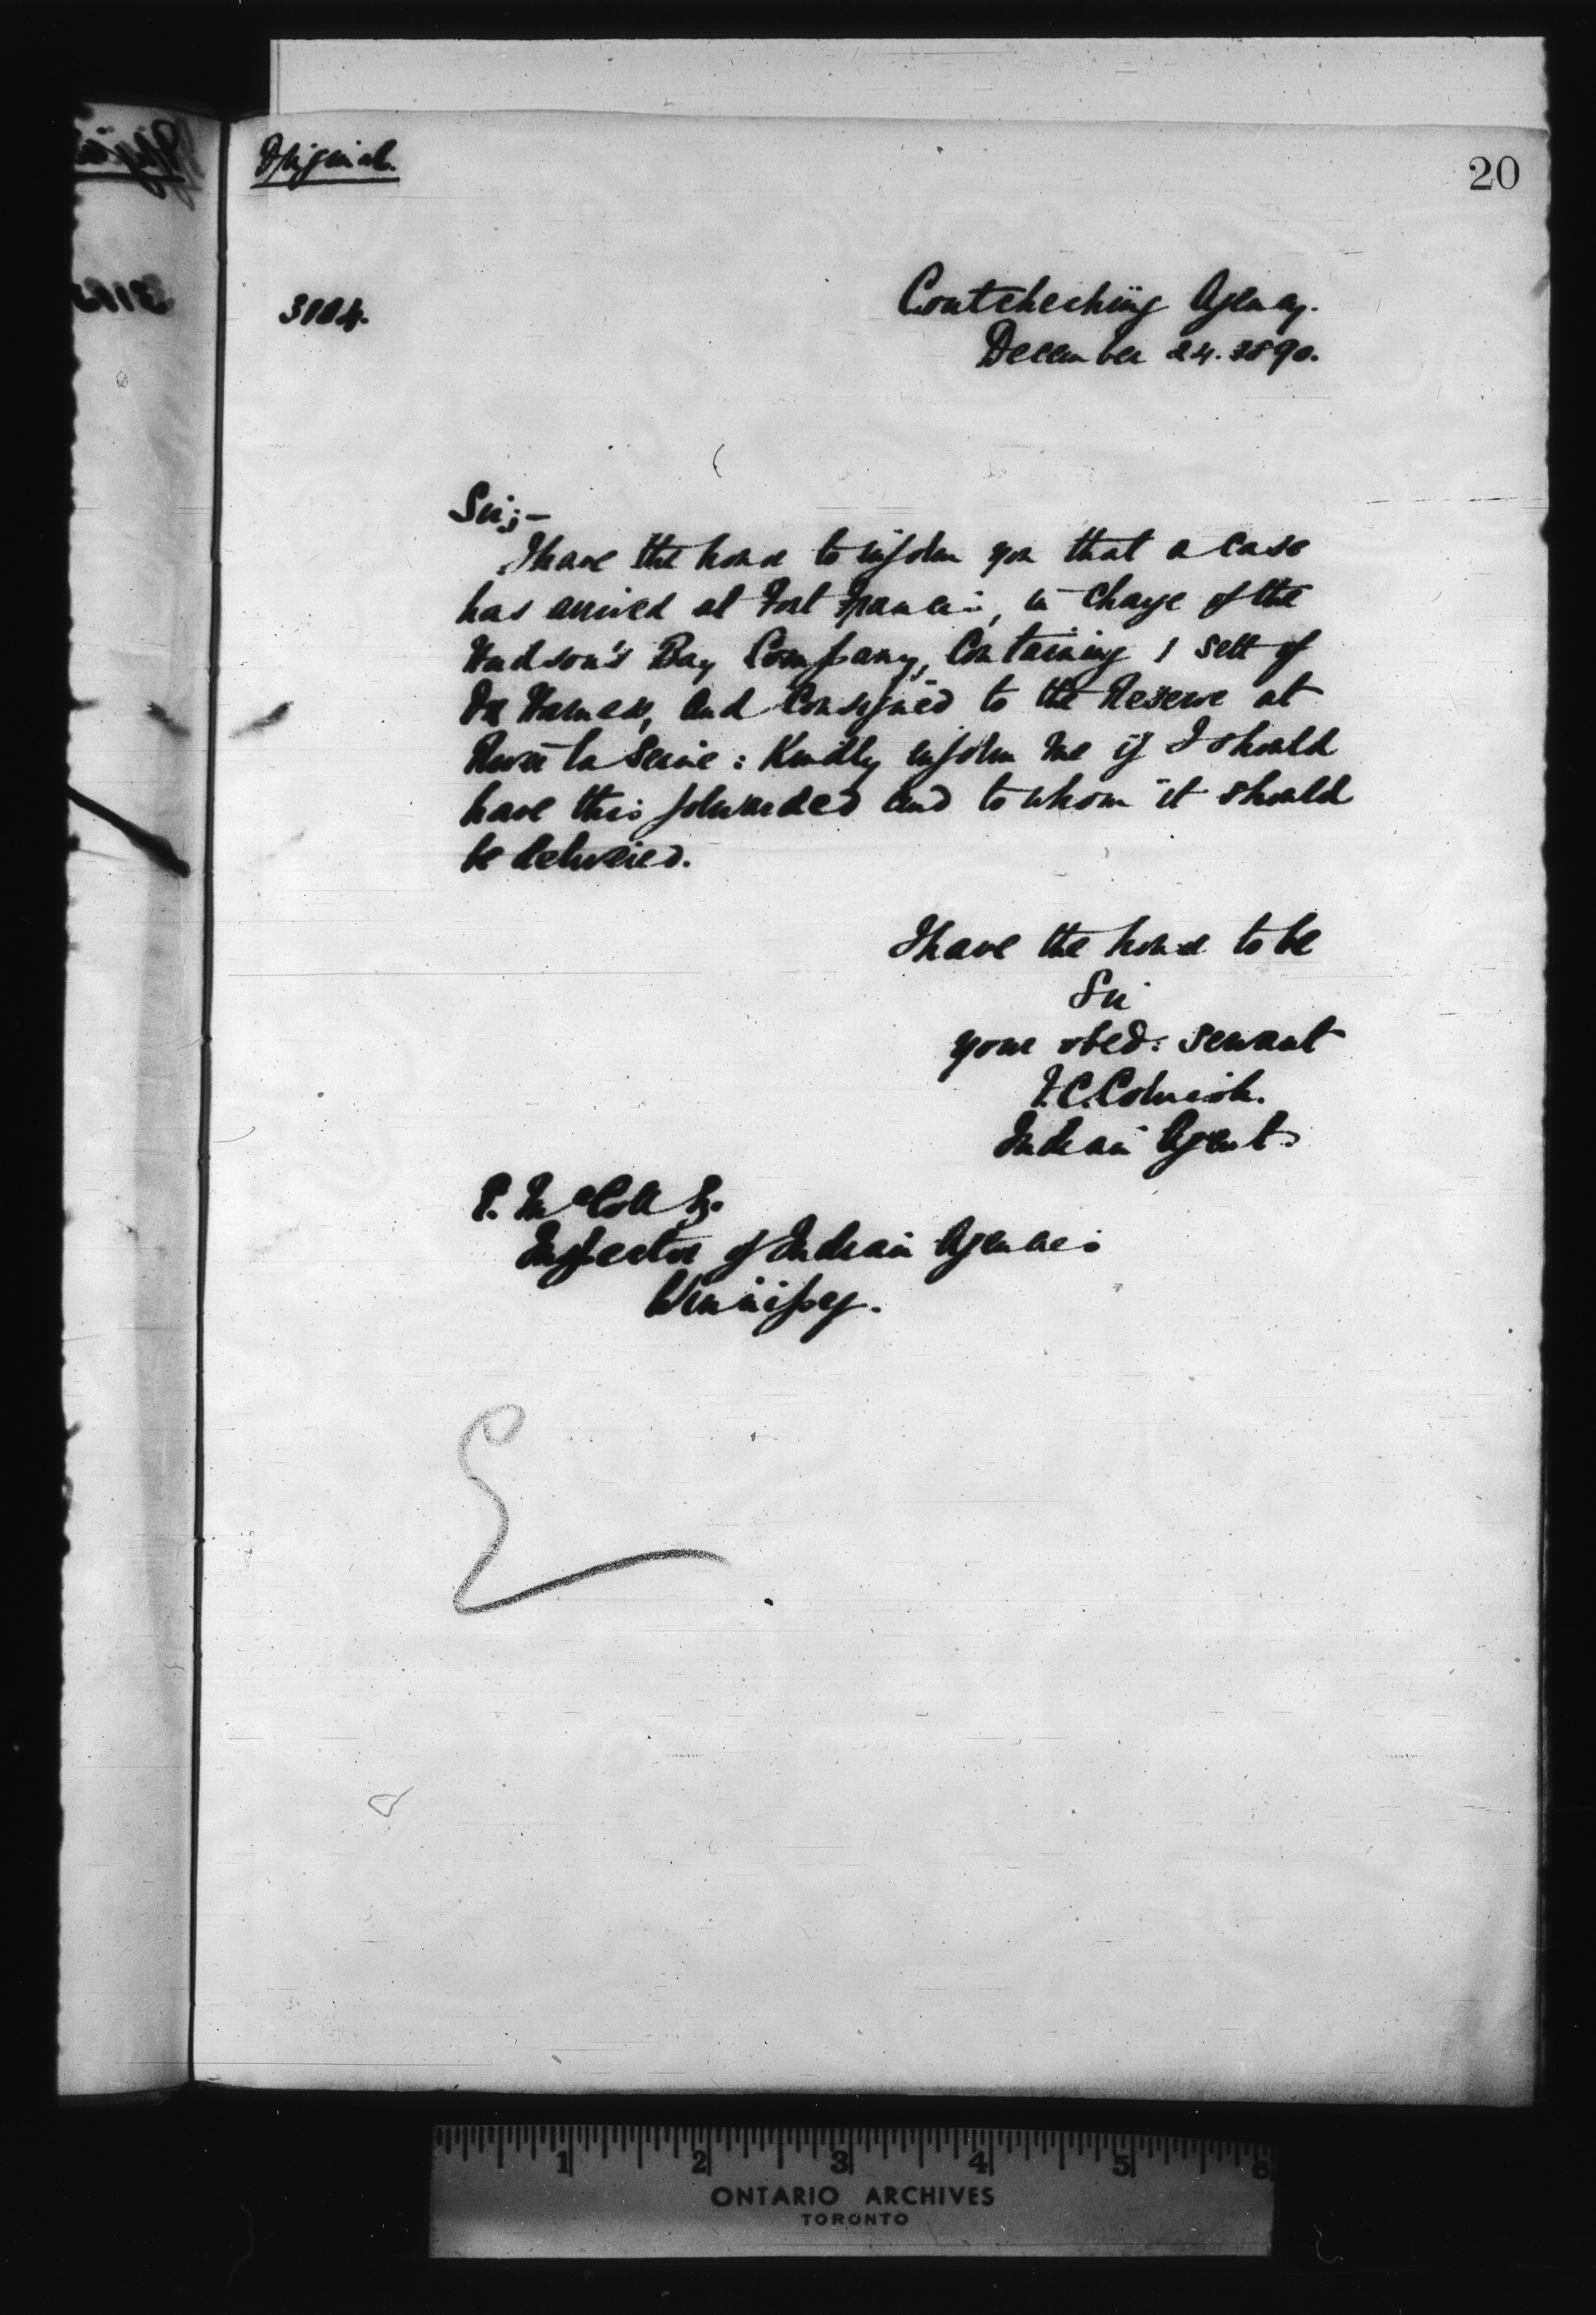 Original.
20
3104.
Coutcheching Agency.
December 24. 1890.
Sir;-
I have the honor to inform you that a case
has arrived at Fort Francis, in charge of the
Hudson's Bay Company, Containing 1 sett of
Ox Harness, and Consigned to the Reserve at
River la Seine: Kindly inform me if I should
have this forwarded and to whom it should
be delivered.
I have the honor to be
Sir
your obed: servant
F.C. Cornish.
Indian Agent.
E. McColl
Inspector of Indian Agencies
Winnipeg.
1 2 3 4 5 6
ONTARIO ARCHIVES
TORONTO